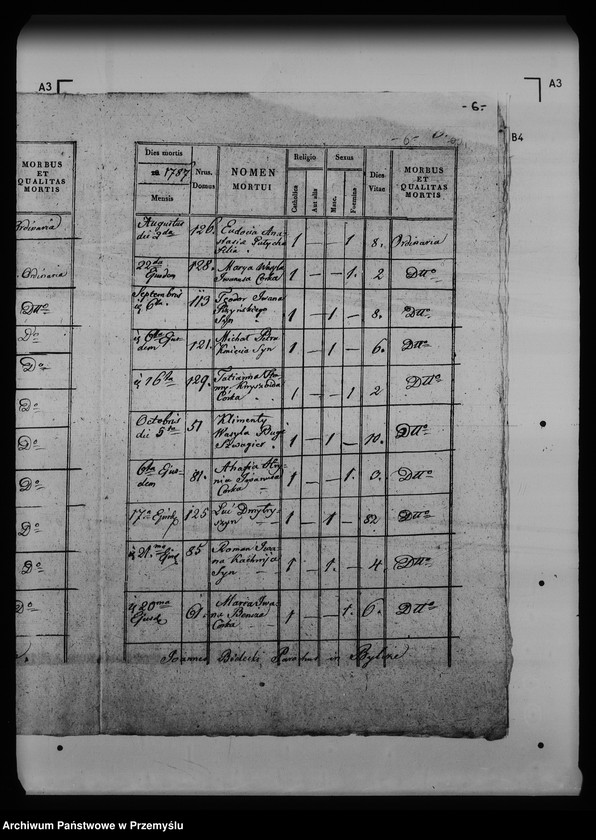 -6-
A3
A3
B4
-6-
MORBUS
ET
QUALITAS
MORTIS
Ordinaria
Ordinaria
Dtto
Do
Do
Do
Do
Do
Do
Do
Do
Dies mortis
1787
Mensis
Nrus.
Domus
NOMEN
MORTUI
Religio
Catholica
Aut alia
Sexus
Masc.
Foemina
Dies
Vitae
MORBUS
ET
QUALITAS
MORTIS
Augustus
die 2da 126. Eudocia Ana-
stasia
filia 1 1 8. Ordinaria
22da
Ejusdem 128. Marya Wasyla
Iwanusa Corka 1 — — 1. 2 Dtto
Septembris
6ta 113 Teodor Iwana
Syn 1 — 1 — 8. Dtto
6ta Ejus-
dem 121. Michał Petra
Kmicia Syn 1 — 1 — 6. Dtto
16ta 129. Tatianna
Córka 1 — — 1 2 Dtto
Octobris
die 5ta 51 Klimenty
Wasyla
1 — 1 — 10. Dtto
6ta Ejus-
dem 81. Ahafia
Corka 1 — — 1. 3. Dtto
17a Ejusd 125 Luć Dmytry-
szyn 1 — 1 — 82 Dtto
21.ma Ejusd 85 Roman Iwa-
na
Syn 1 — 1. — 4 Dtto
20ma
Ejusd 61. Maria Iwa-
na
Corka 1 — — 1. 6. Dtto
Joannes Parochus in
Archiwum Państwowe w Przemyślu